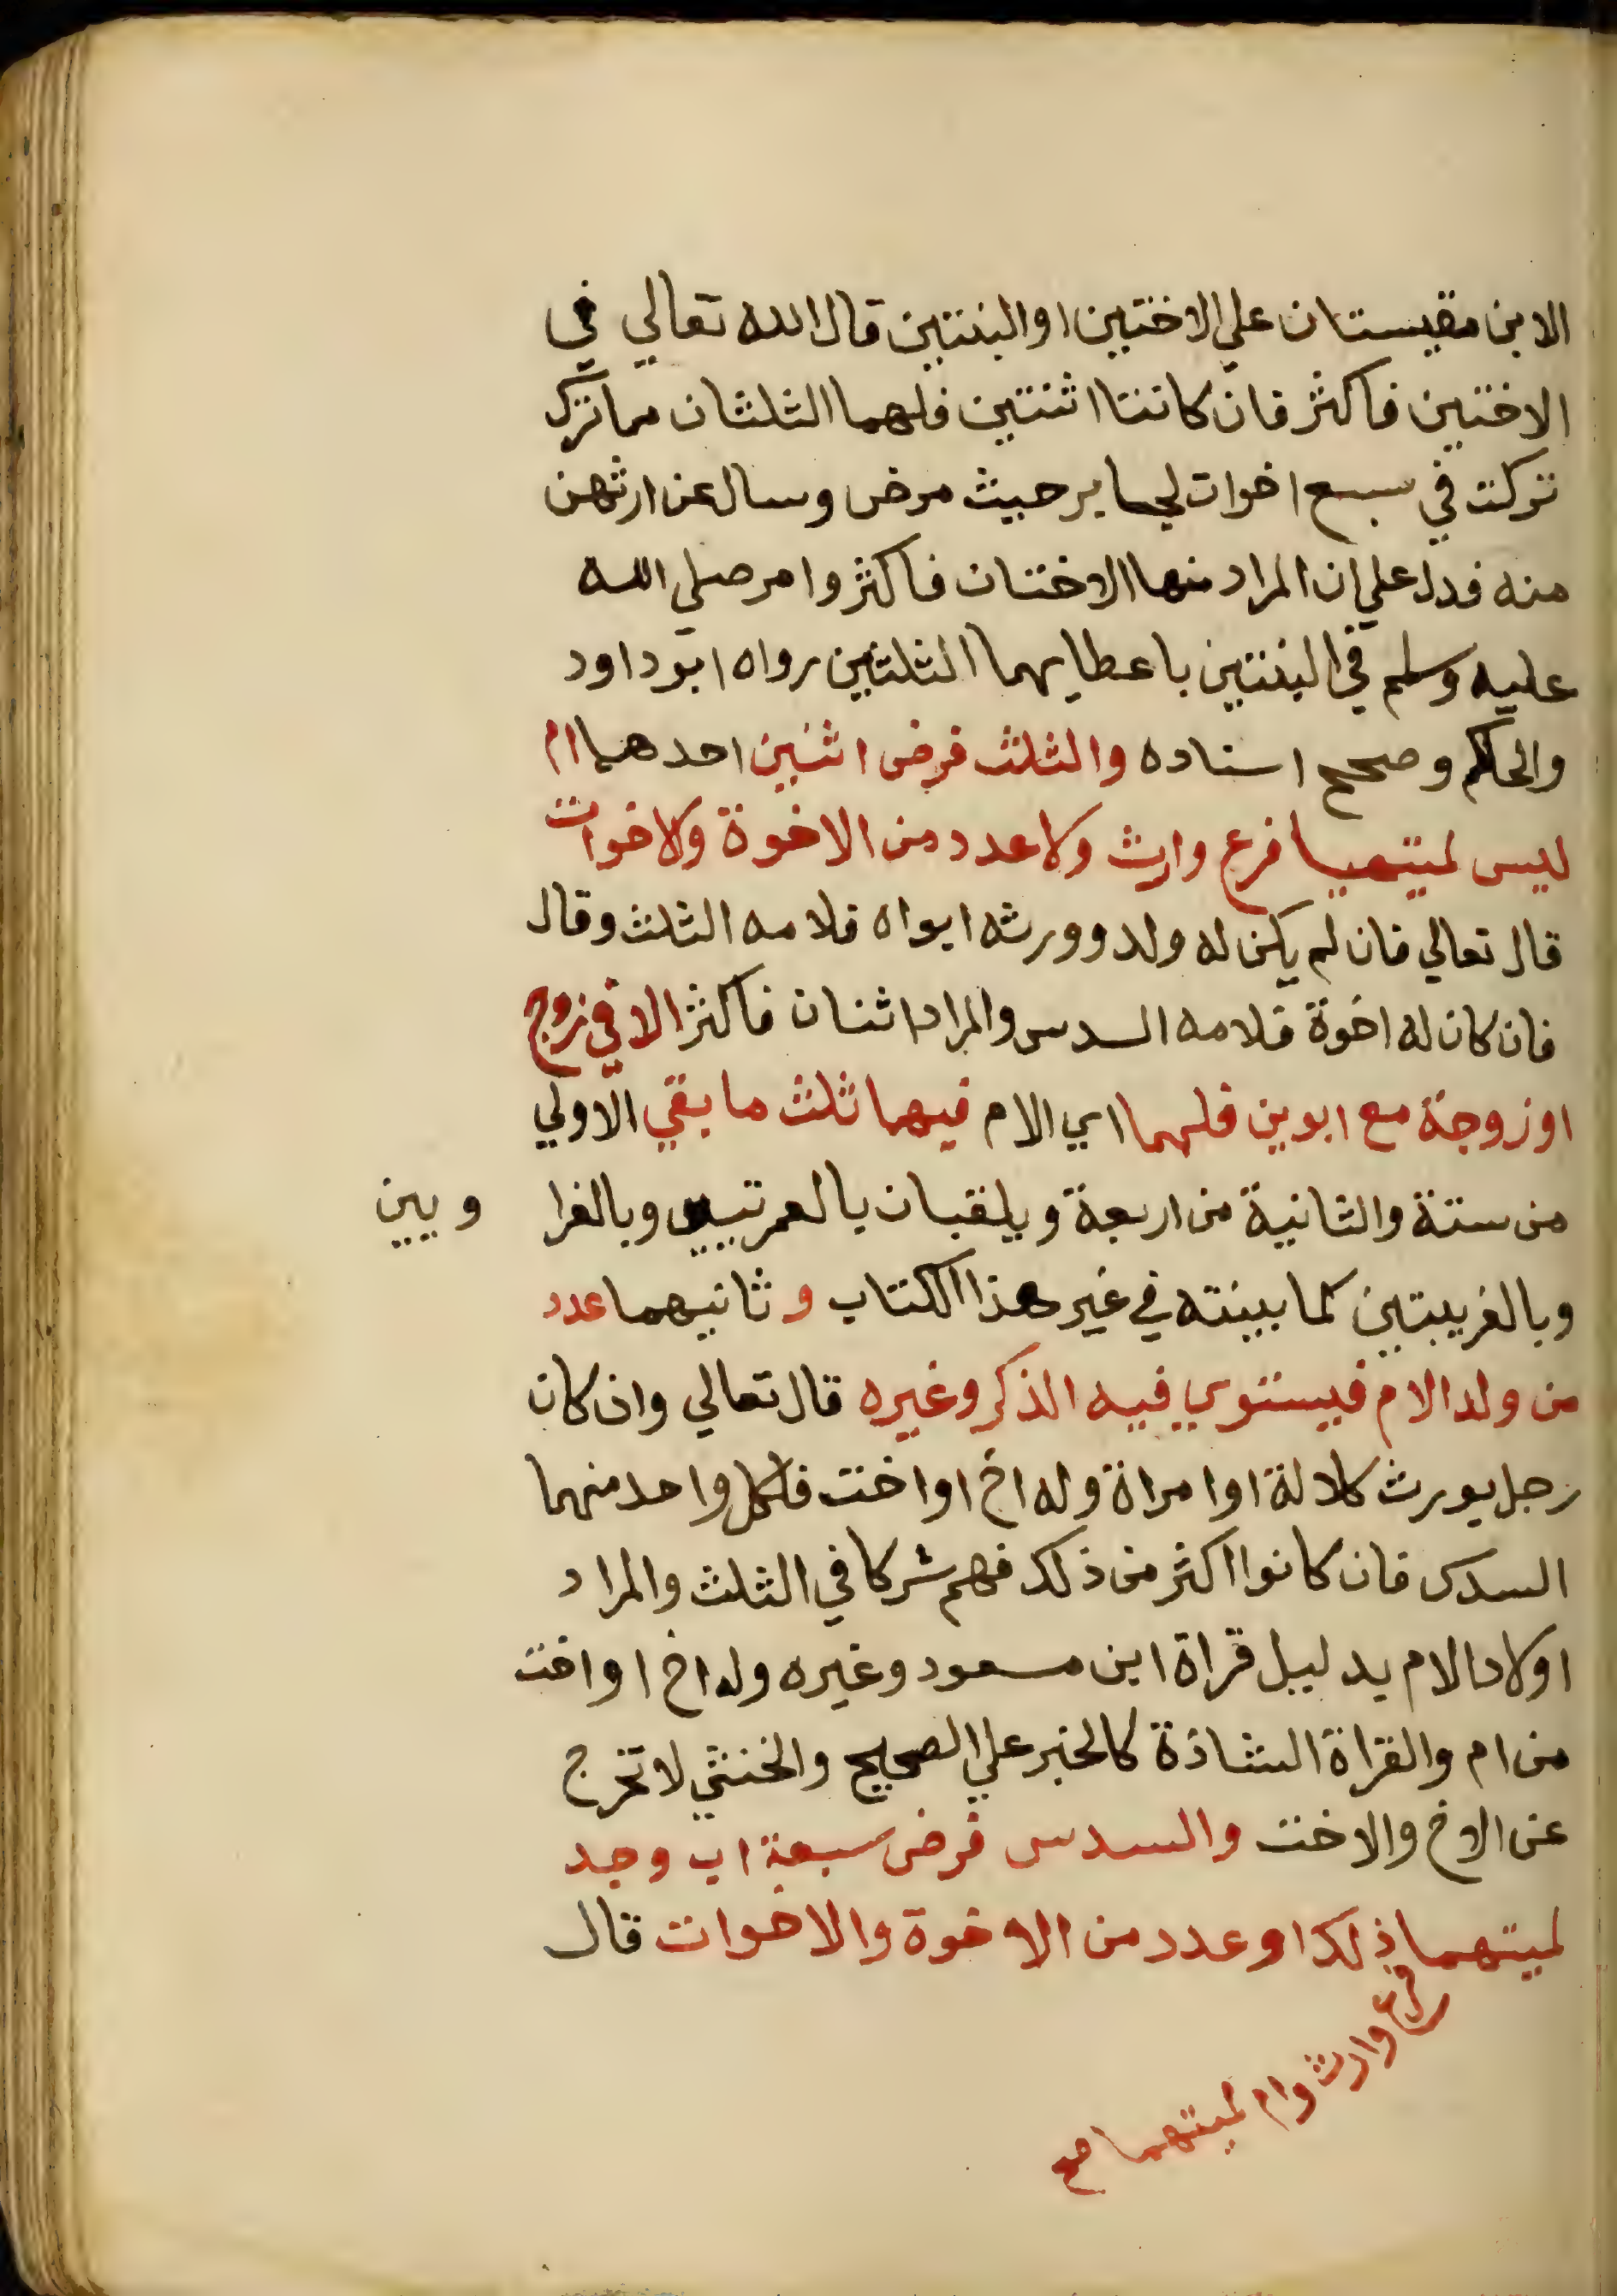 الابن مقيستان علي الاختين او البنتين قال الله تعالي في
الاختين فاكثر فان كانتا اثنتين فلهما الثلثان مما ترك
نزلت في سبع اخوات لجابر حيث مرض وسال عن ارثهن
منه فدل علي ان المراد منها الاختان فاكثر وامر صلي الله
عليه وسلم في البنتين باعطايهما الثلثين رواه ابو داود
والحاكم وصحح اسناده والثلث فرض اثنين احدهما ام
ليس لميتها فرع وارث ولا عدد من الاخوة والاخوات
قال تعالي فان لم يكن له ولد وورثه ابواه فلامه الثلث وقال
فان كان له اخوة فلامه السدس والمراد اثنان فاكثر الا في زوج
او زوجة مع ابوين فلهما اي الام فيهما ثلث ما بقي الاولي
من ستة والثانية من اربعة ويلقبان بالعمرتيين وبالغرا ويين
وبالغريبتين كما بينته في غير هذا الكتاب و ثانيهما عدد
من ولد الام فيستوي فيه الذكر وغيره قال تعالي وان كان
رجل يورث كلالة او امراة وله اخ او اخت فلكل واحد منهما
السدس فان كانوا اكثر من ذلك فهم شركا في الثلث والمراد
اولاد الام بدليل قراة ابن مسعود وغيره وله اخ او اخت
من ام والقراة الشاذة كالخبر علي الصحيح والخنثي لا تخرج
عن الاخ والاخت والسدس فرض سبعة اب وجد
لميتهما ذلك او عدد من الاخوة والاخوات قال
فرع وارث وام لميتهما صح